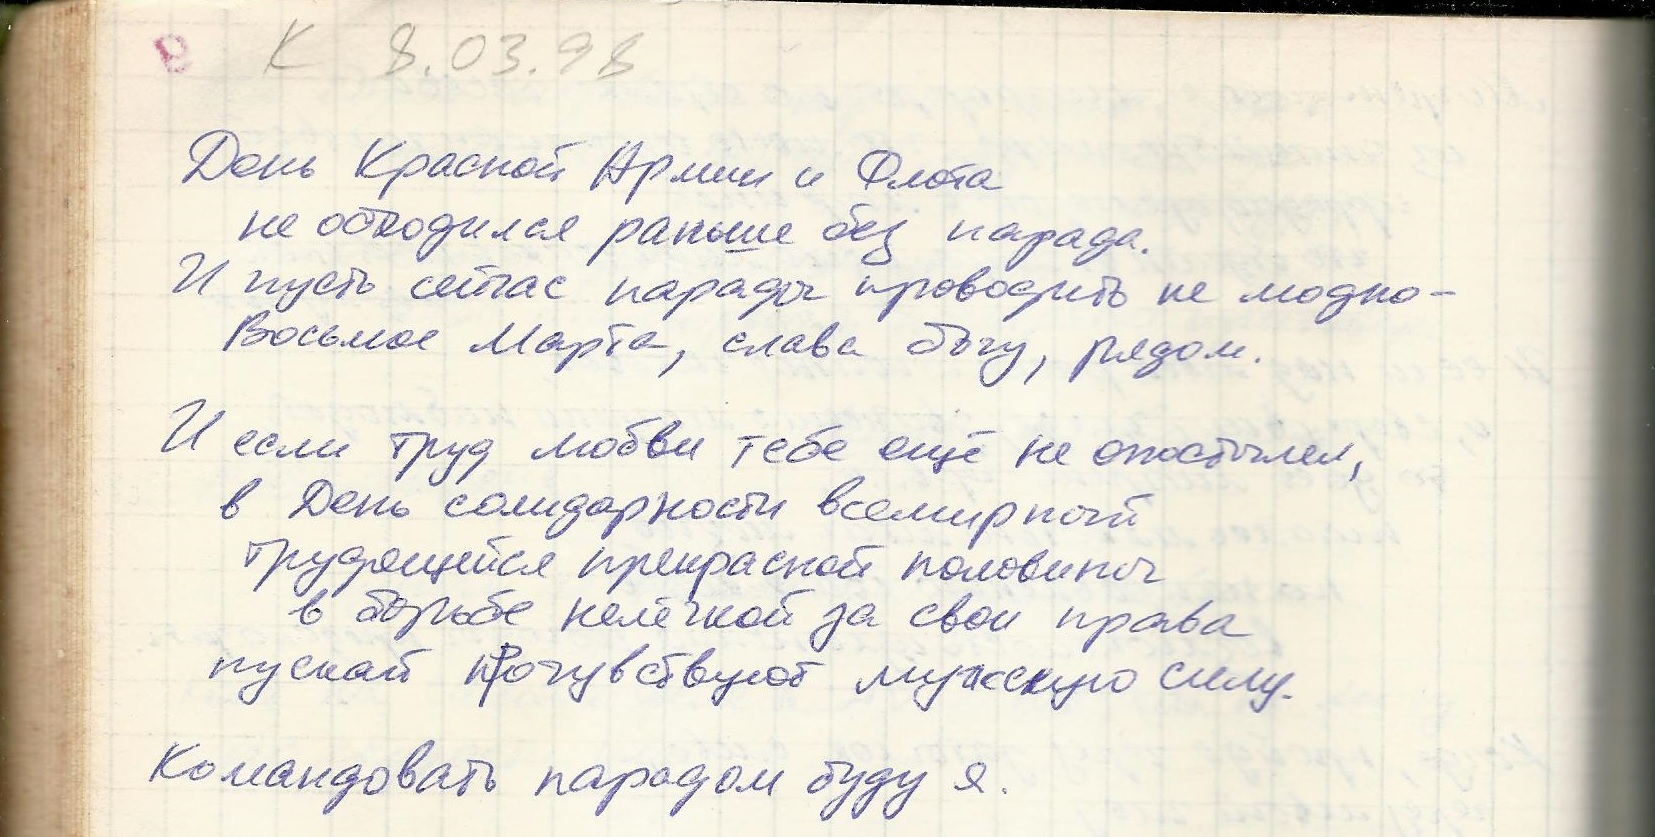 К 8.03.98
День Красной Армии и Флота
не обходился раньше без парада.
И пусть сейчас парады проводить не модно-
Восьмое Марта, слава богу, рядом.
И если труд любви тебе ещё не опостылел,
в День солидарности всемирный
трудящейся прекрасной половины
в борьбе нелёгкой за свои права
пускай прочувствуют мужскую силу.
Командовать парадом буду я.